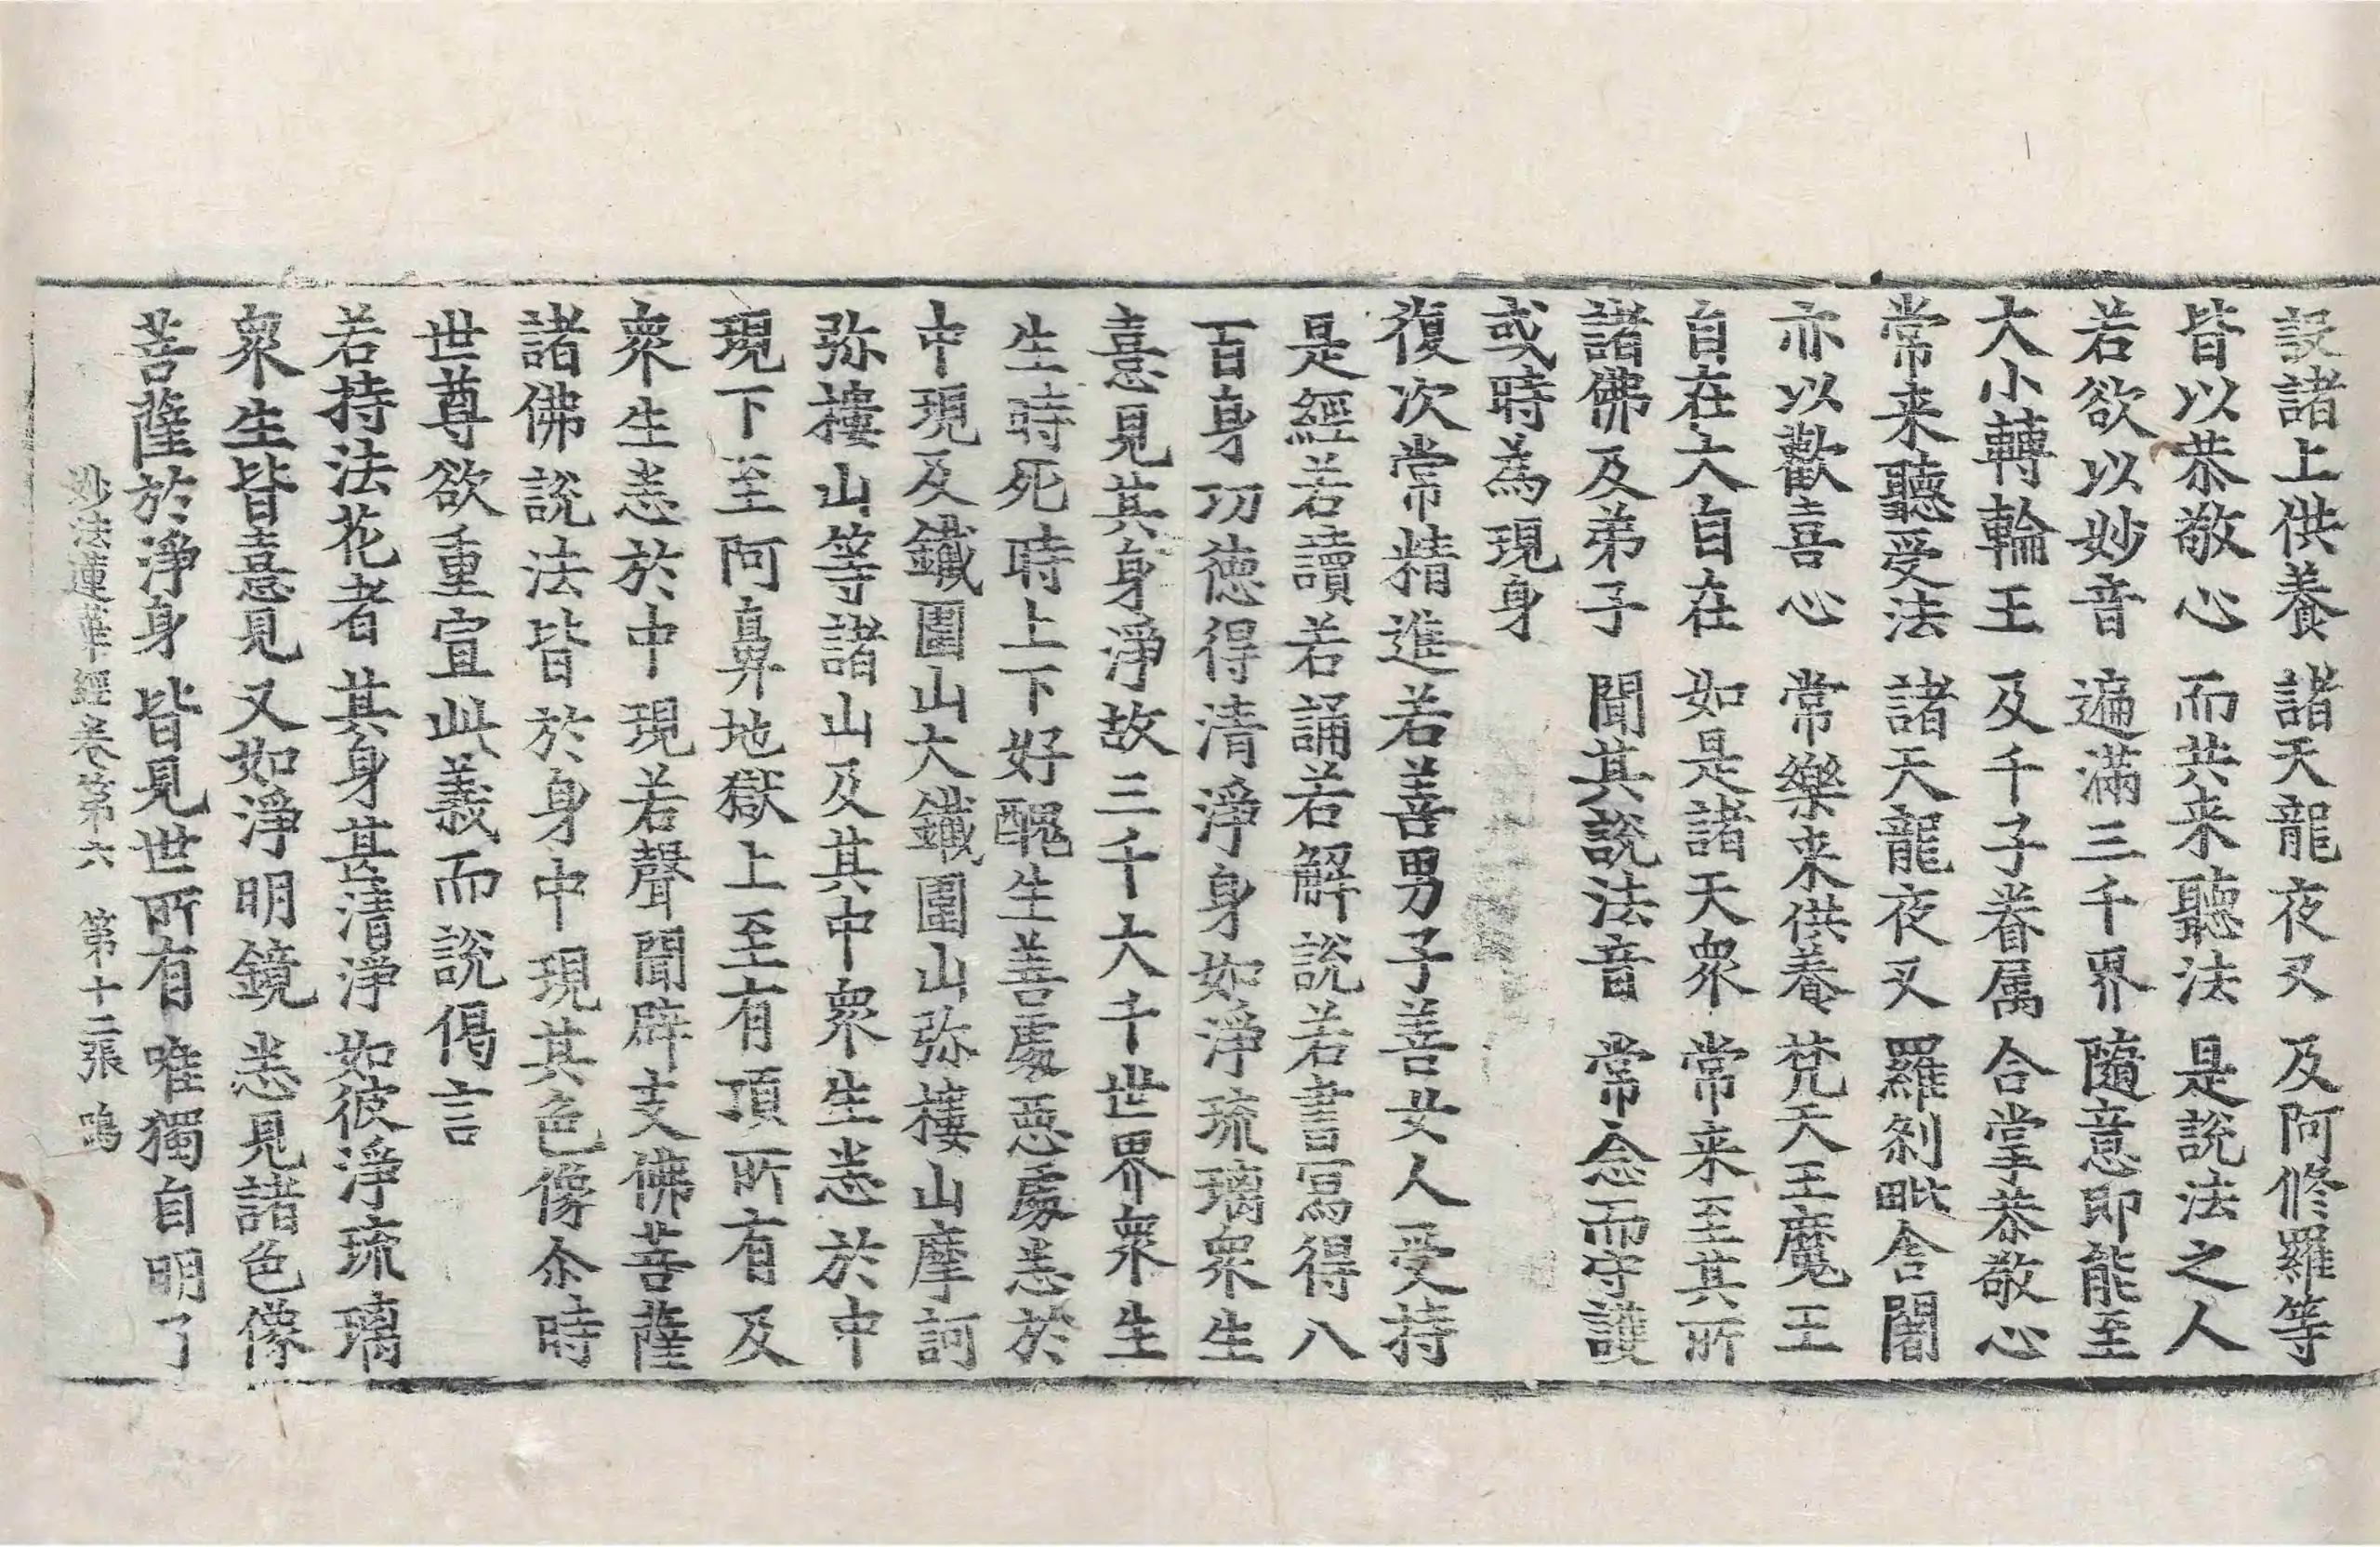 設諸上供養 諸天龍夜叉 及阿修羅等
皆以恭敬心 而共来聽法 是說法之人
若欲以妙音 遍滿三千界 隨意即能至
大小轉輪王 及千子眷属 合掌恭敬心
常来聽受法 諸天龍夜叉 羅刹毗舍闍
亦以歡喜心 常樂来供養 梵天王魔王
自在大自在 如是諸天衆 常来至其所
諸佛及弟子 聞其說法音 常念而守護
或時為現身
復次常精進若善男子善女人受持
是經若讀若誦若解說若書寫得八
百身功德得清淨身如淨琉璃衆生
憙見其身淨故三千大千世界衆生
生時死時上下好醜生善處惡處悉於
中現及鐵圍山大鐵圍山弥樓山摩訶
弥樓山等諸山及其中衆生悉於中
現下至阿鼻地獄上至有頂所有及
衆生悉於中現若聲聞辟支佛菩薩
諸佛說法皆於身中現其色像尒時
世尊欲重宣此義而說偈言
若持法花者 其身甚清淨 如彼淨琉璃
衆生皆憙見 又如淨明鏡 悉見諸色像
菩薩於淨身 皆見世所有 唯獨自明了
妙法蓮華經卷第六 第十二張